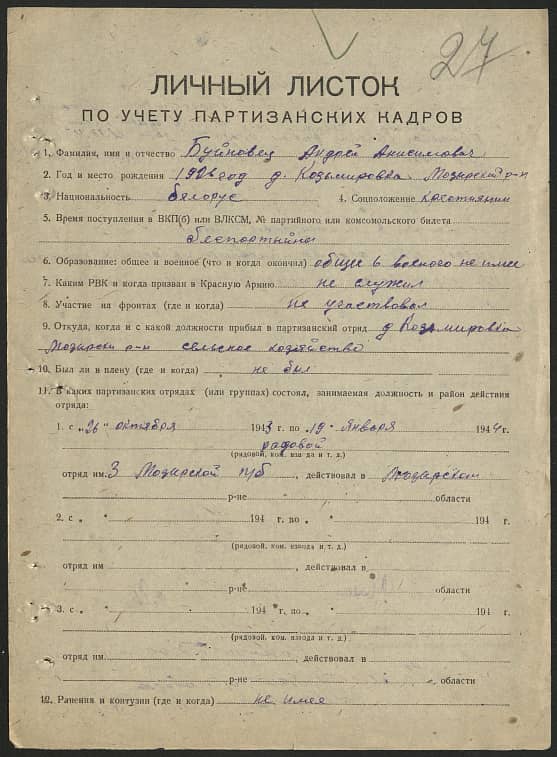 27
ЛИЧНЫЙ ЛИСТОК
ПО УЧЕТУ ПАРТИЗАНСКИХ КАДРОВ
1. Фамилия, имя и отчество Буйновец Андрей Анисимович
2. Год и место рождения год д. Козымировка Мозырский р-н
3. Национальность белорус 4. Соцположение
5. Время поступления в ВКП(б) или ВЛКСМ, № партийного или комсомольского билета
беспортийны
6. Образование: общее и военное (что и когда окончил) общее 6 военого не имее
7. Каким РВК и когда призван в Красную Армию не служил
8. Участие на фронтах (где и когда) не участвовал
9. Откуда, когда и с какой должности прибыл в партизанский отряд д Козымировка
Мозырски р-н сельское хозяйство
10. Был ли в плену (где и когда) не был
11. В каких партизанских отрядах (или группах) состоял, занимаемая должность и район действия
отряда:
1. с „26" октября 1943 г. по „19" января 1944 г.
рядовой
(рядовой, ком. взвода и т. д.)
отряд им. 3 Мозырской п/б, действовал в Мозырском
р-не области
2. с „ " 194 г. по „ " 194 г.
(рядовой, ком. взвода и т. д.)
отряд им , действовал в
р-не области
3. с „ " 194 г. по „ " 194 г.
(рядовой, ком. взвода и т. д.)
отряд им. , действовал в
р-не области
12. Ранения и контузии (где и когда) не имее